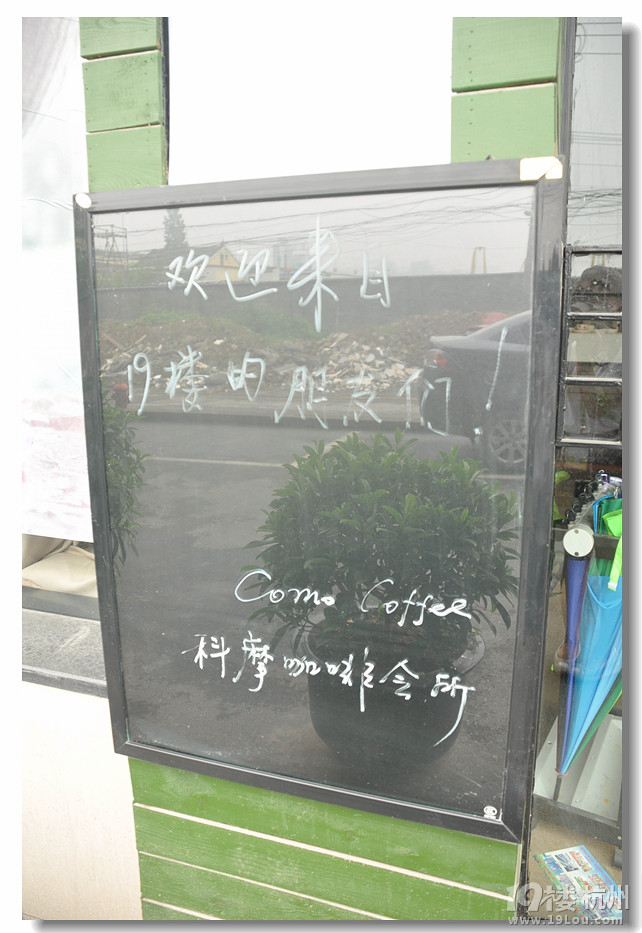 欢迎来自
19楼的朋友们！
Como Coffee
科摩咖啡会所
19楼杭州
www.19lou.com